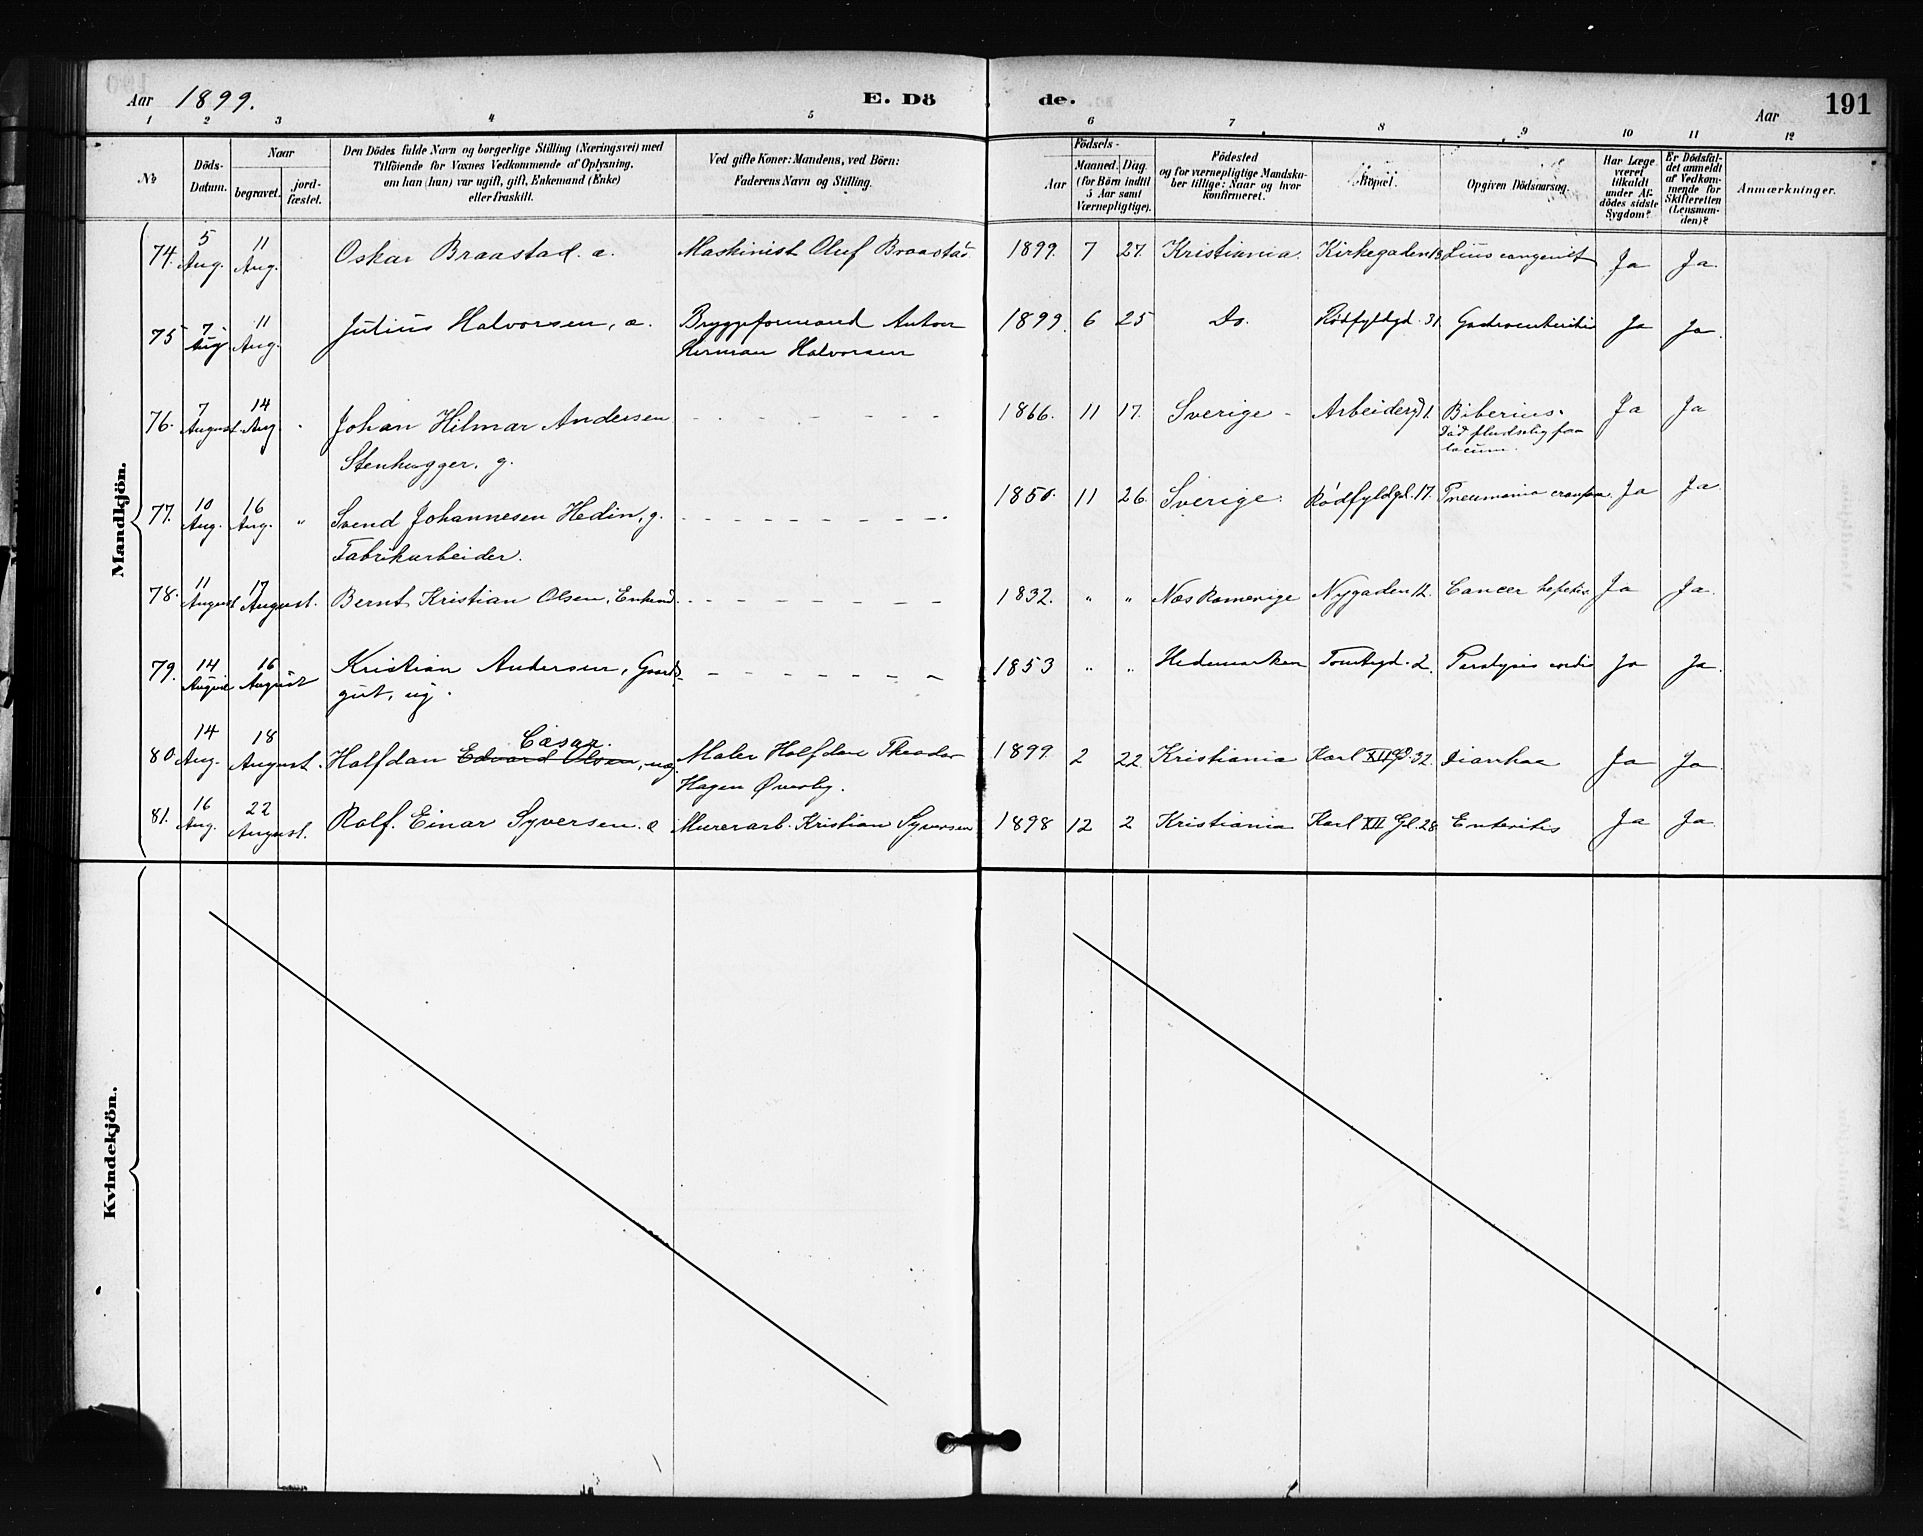 Aar 1899. E. Dö de. Aar 191
1 2 3 4 5 6 7 8 9 10 11 12
№
Döds-Datum.
Naar
begravet. jord-fæstet.
Den Dödes fulde Navn og borgerlige Stilling (Næringsvei) med
Tilföiende for Vaxnes Vedkommende af Oplysning,
om han (hun) var ugift, gift, Enkemand (Enke)
eller fraskilt.
Ved gifte Koner: Mandens, ved Börn:
Faderens Navn og Stilling.
Födsels-
Aar Maaned. Dag.
(for Börn indtil
5 Aar samt
Værnepligtige).
Födested
og for værnepligtige Mandska-
ber tillige: Naar og hvor
konfirmeret.
Bopæl.
Opgiven Dödsaarsag.
Har Læge
været
tilkaldt
under Af-
dödes sidste
Sygdom?
Er Dödsfal-
det anmeldt
af Vedkom-
mende for
Skifteretten
(Lensman-
den)?
Anmærkninger.
Mandkjön.
74. 5 Aug. 11 Aug. Oskar Braastad. a. Maskinist Oluf Braastad 1899. 7 27. Kristiania. Kirkegaden 13 Lues congenit Ja Ja.
75 7 Aug 11 Aug. Julius Halvorsen, a. Bryggeformand Anton 1899. 6 25 Do. Rødfyldgd. 31 Gastroenteritis Ja Ja.
Herman Halvorsen
76. 7 August 14 Aug. Johan Hilmar Andersen - - - - - - 1866. 11 17. Sverige - Arbeidergd 1. Ja Ja
Stenhugger, g.
77. 10 Aug. 16 Aug. " Svend Johannesen Hedin, g. - - - - - - 1850. 11 26 Sverige. Rødfyldgd. 17. Pneumonia crouposa. Ja Ja.
Fabrikarbeider.
78. 11 August 17 August. Bernt Kristian Olsen, Enkemd. - - - - - - 1832. " " Næs Romerige Nygaden 12. Cancer hepatis Ja Ja.
79. 14 August 16 August Kristian Andersen, Gaards- - - - - - - 1853 " " Hedemarken Tomtegd. 2. Paralysis cordis Ja Ja.
gut, ug.
Cæsar.
80 14 Aug. 18 August. Halfdan Edvard Olsen, uæg. Maler Halfdan Theodor 1899. 2 22 Kristiania Karl XII Gd. 32. Diarrhoe Ja Ja.
Hagen Øverby.
81. 16 Aug. 22 August. Rolf. Einar Syversen. a Murerarb. Kristian Syversen 1898 12 2 Kristiania Karl XII Gd. 28 Enteritis Ja Ja.
Kvindekjön.